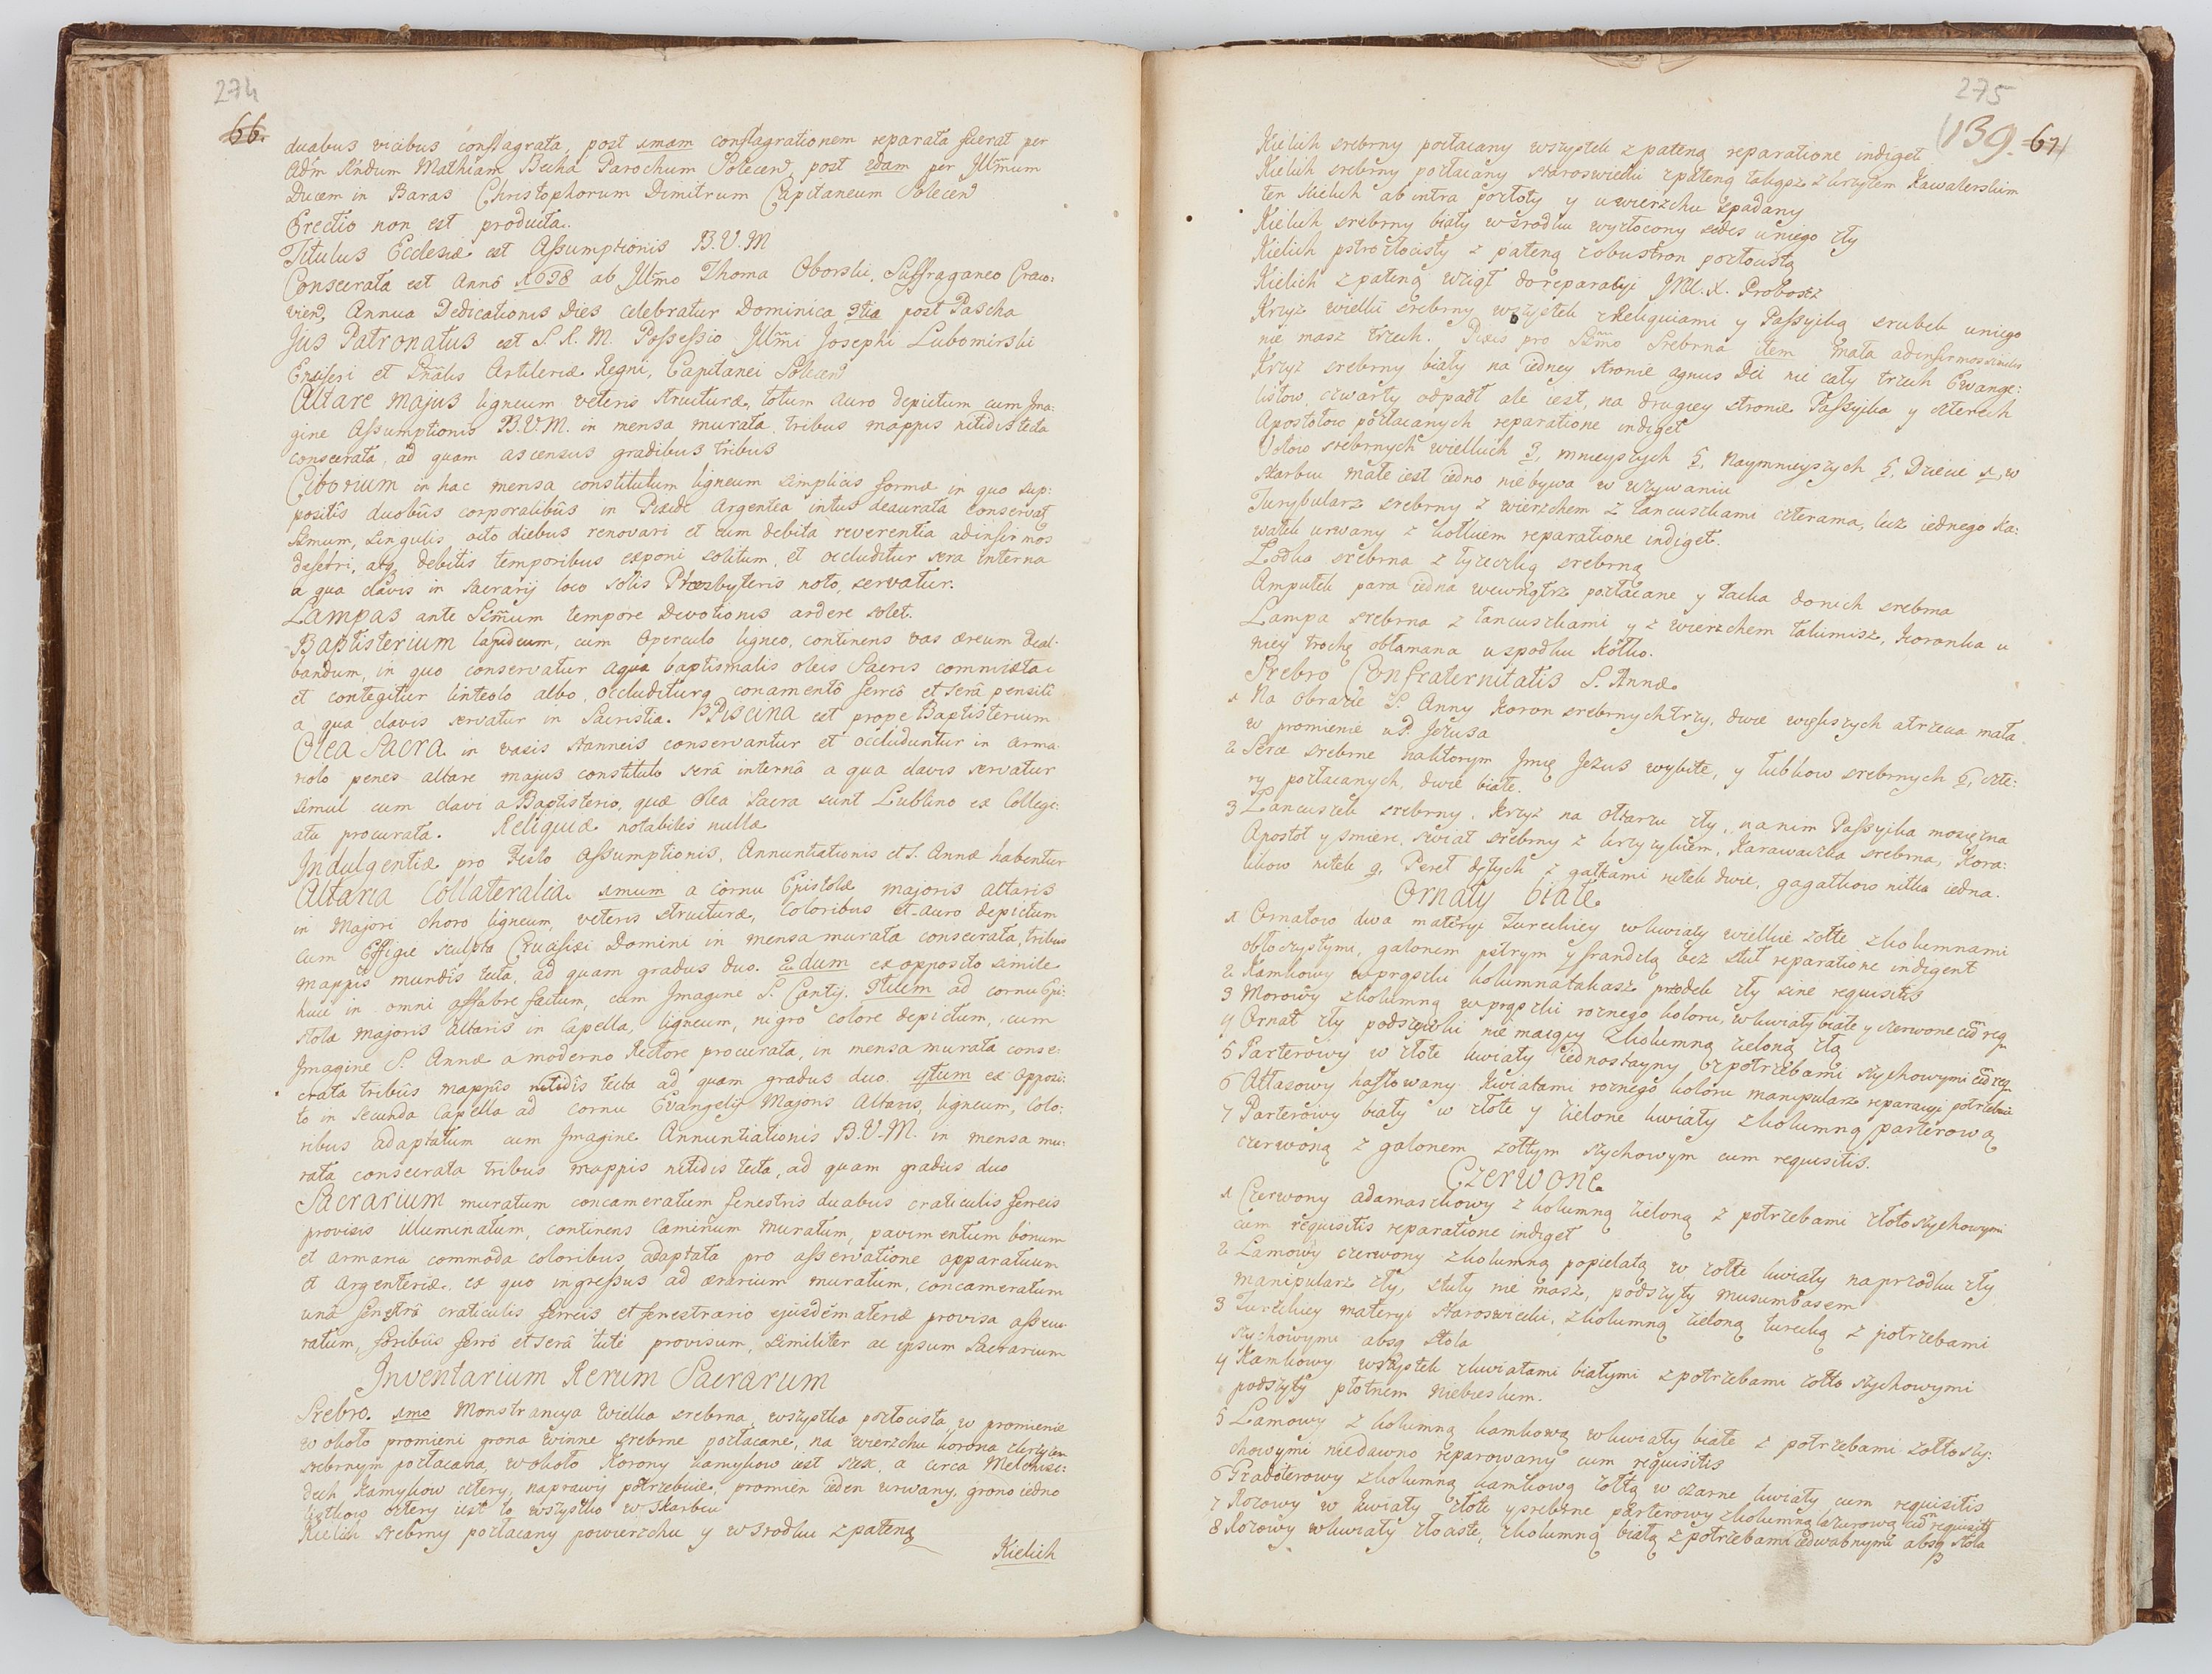 274
66.
duabus vicibus conflagrata, post 1mam conflagrationem reparata fuerat per
Adm Rndum Mathiam Becha Parochum Solecen post 2dam per Illmum
Ducem in Baras Christophorum Dimitrum Capitaneum Solecen
Erectio non est producta.
Titulus Ecclesiæ est Assumptionis B.V.M
Consecrata est Annô 1698 ab Illmo Thoma Oborski, Suffraganeo Craco:
vien, Annua Dedicationis Dies celebratur Dominica 3tia post Pascha
Jus Patronatus est S. R. M. Possessio Illmi Josephi Lubomirski
Ensiferi et Gnâlis Artileriæ Regni, Capitanei Solecen
Altare majus ligneum veteris structuræ, totum auro depictum cum Ima:
gine Assumptionis B.V.M. in mensa murata tribus mappis nitidis tecta
consecrata, ad quam ascensus gradibus tribus
Ciborium in hac mensa constitutum ligneum simplicis formæ in quo sup:
positis duobûs corporalibûs in Pixide Argentea intus deaurata conservat
Smum, singulis octo diebus renovari et cum debita reverentia ad infirmos
deferri, atq debitis temporibus exponi solitum, et occluditur sera interna
a qua clavis in sacrarij loco solis Præsbyteris noto, servatur.
Lampas ante Ssmum tempore Devotionis ardere solet.
Baptisterium lapideum, cum Operculo ligneo, continens vas æreum deal-
bandum, in quo conservatur aqua baptismalis oleis Sacris commixta
et contegitur linteolo albo, occluditurq conamentô ferreô et serâ pensili
a qua clavis servatur in Sacristia. Piscina est prope Baptisterium
Olea Sacra in vasis stanneis conservantur et occluduntur in arma
riolo penes altare majus constituto serâ internâ a qua clavis servatur
simul cum clavi a Baptisterio, quæ Olea Sacra sunt Lublino ex Collegi:
ata procurata. Reliquiæ notabiles nullæ
Indulgentiæ pro Festo Assumptionis, Annuntiationis et S. Annæ habentur
Altaria Collateralia 1mum a cornu Epistolæ majoris altaris
in Majori choro ligneum, veteris structuræ, Coloribus et auro depictum
cum Effigie sculpta Crucifixi Domini in mensa murata consecrata, tribus
mappis mundis tecta, ad quam gradus duo. 2dum ex opposito simile
huic in omni affabre factum, cum Imagine S. Cantij. 3tium ad cornu Epi:
stolæ majoris altaris in Capella, ligneum, nigro colore depictum, cum
Imagine S. Annæ a moderno Rectore procurata, in mensa murata conse:
crata tribûs mappis nitidis tecta ad quam gradus duo. 4tum ex opposi:
to in secunda Capella ad cornu Evangelij Majoris Altaris, ligneum, Colo:
ribus adaptatum cum Imagine Annuntiationis B.V.M. in mensa mu:
rata consecrata tribus mappis nitidis tecta, ad quam gradus duo
Sacrarium muratum concameratum fenestris duabus craticulis ferreis
provisis illuminatum, continens Caminum muratum, pavimentum bonum
et armaria commoda coloribus adaptata pro asservatione apparatuum
et Argenteriæ, ex quo ingressus ad ærarium muratum, concameratum
unâ fenestrâ craticulis ferreis et fenestrario ejusdem materiæ provisa assecu
ratum, foribûs ferrô et serâ tutè provisum, similiter ac ipsum Sacrarium
Inventarium Rerum Sacrarum
Srebro. 1mo Monstrancya Wielka srebrna, wszystka pozłocista, w promienie
w około promieni grona winne srebrne pozłacane, na wierzchu korona z krzyżem
srebrnym pozłacana, wokoło Korony kamykow iest szesc, a circa Melchise:
dech Kamykow cztery, naprawy potrzebuie, promien ieden urwany, grono iedno
listkow cztery iest to wszystko w skarbcu
Kielich srebrny pozłacany powierzchu y w srodku z pateną
Kielich
275
139. 67
Kielich srebrny pozłacany wszystek z pateną reparatione indiget
Kielich srebrny pozłacany staroswiecki z pateną takąsz z krzyżem Kawalerskim
ten kielich ab intra pozłoty y uwierzchu spadany
Kielich srebrny biały w srodku wyzłocony sedes u niego zły
Kielich pstrozłocisty z pateną z obustron pozłocistą
Kielich z pateną wziął do reparacyi JM. X. Proboszcz
Krzyż wielki srebrny wszystek z Reliquiami y Passyiką srubek u niego
nie masz trzech. Pixis pro Ssmo Srebrna item mała ad infirmos similis
Krzyż srebrny biały na iedney stronie Agnus Dei nie cały trzech Ewange:
listow, czwarty odpadł ale iest, na drugiey stronie Passyika y czterech
Apostołow pozłacanych reparatione indiget
Votow srebrnych wielkich 3, mnieyszych 5, Naymnieyszych 5, Dziecie 1, w
skarbcu małe iest iedno nie bywa w używaniu
Turybularz srebrny z wierzchem z Łancuszkami czterema, lecz iednego Ka:
wałek urwany z kołkiem reparatione indiget.
Łodka srebrna z łyżeczką srebrną
Ampułek para iedna wewnątrz pozłacane y Tacka do nich srebrna
Lampa srebrna z łancuszkami y z wierzchem takimisz, koronka u
niey trochę obłamana u spodku kółko.
Srebro Confraternitatis S. Annæ
1 Na Obrazie S. Anny Koron srebrnych trzy, dwie większych a trzecia mała
w promienie u P. Jezusa
2 Serce srebrne na ktorym Imię Jezus wybite, y Tubkow srebrnych 6, czte:
ry pozłacanych, dwie białe.
3 Łancuszek srebrny. Krzyż na ołtarzu zły, na nim Passyika mosiężna
Apostoł y smierc, swiat srebrny z krzyżykiem, Karawaczka srebrna, Kora:
likow nitek 9, Pereł dętych z gałkami nitek dwie, gagatkow nitka iedna.
Ornaty białe
1 Ornatow dwa materyi Tureckiey w kwiaty wielkie zołte z kolumnami
obłoczystymi, galonem pstrym y frandzlą bez stuł reparatione indigent
2 Kamkowy w prążki kolumna takasz przodek zły sine requisitis
3 Morowy z kolumną w prążki roznego koloru, w kwiaty białe y czerwone cum req
4 Ornat zły podszewki nie maiący z kolumną zieloną złą
5 Parterowy w złote kwiaty iednostayny z potrzebami szychowymi cum req
6 Atłasowy haftowany kwiatami roznego koloru manipularz reparacyi potrzebuie
7 Parterowy biały w złote y zielone kwiaty z kolumną parterową
czerwoną z galonem zołtym szychowym cum requisitis.
Czerwone
1 Czerwony adamaszkowy z kolumną zieloną z potrzebami złotoszychowymi
cum requisitis reparatione indiget
2 Lamowy czerwony z kolumną popielatą w zołte kwiaty na przodku zły
manipularz zły, stuły nie masz, podszyty musumbasem
3 Tureckiey materyi staroswiecki, z kolumną zieloną turecką z potrzebami
szychowymi absq stola
4 Kamkowy wszystek z kwiatami białymi z potrzebami zołto szychowymi
podszyty płotnem niebieskim.
5 Lamowy z kolumną kamkową w kwiaty białe z potrzebami zołtoszy:
chowymi niedawno reparowany cum requisitis
6 Gradeterowy z kolumną kamkową zołtą w czarne kwiaty cum requisitis
7 Rozowy w kwiaty złote y srebrne parterowy z kolumną lazurową cum requisitis
8 Rozowy w kwiaty złociste, z kolumną białą z potrzebami iedwabnymi absq stola